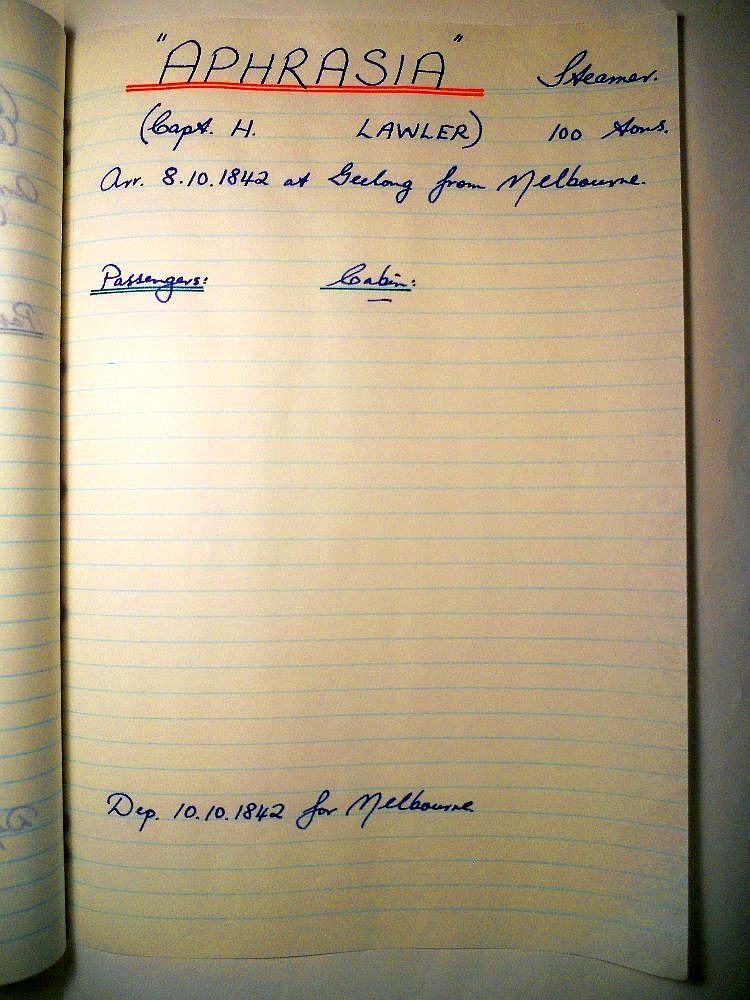 "APHRASIA" Steamer.
(Capt. H. LAWLER) 100 Tons.
Arr. 8.10.1842 at Geelong from Melbourne.
Passengers: Cabin:
Dep. 10.10.1842 for Melbourne